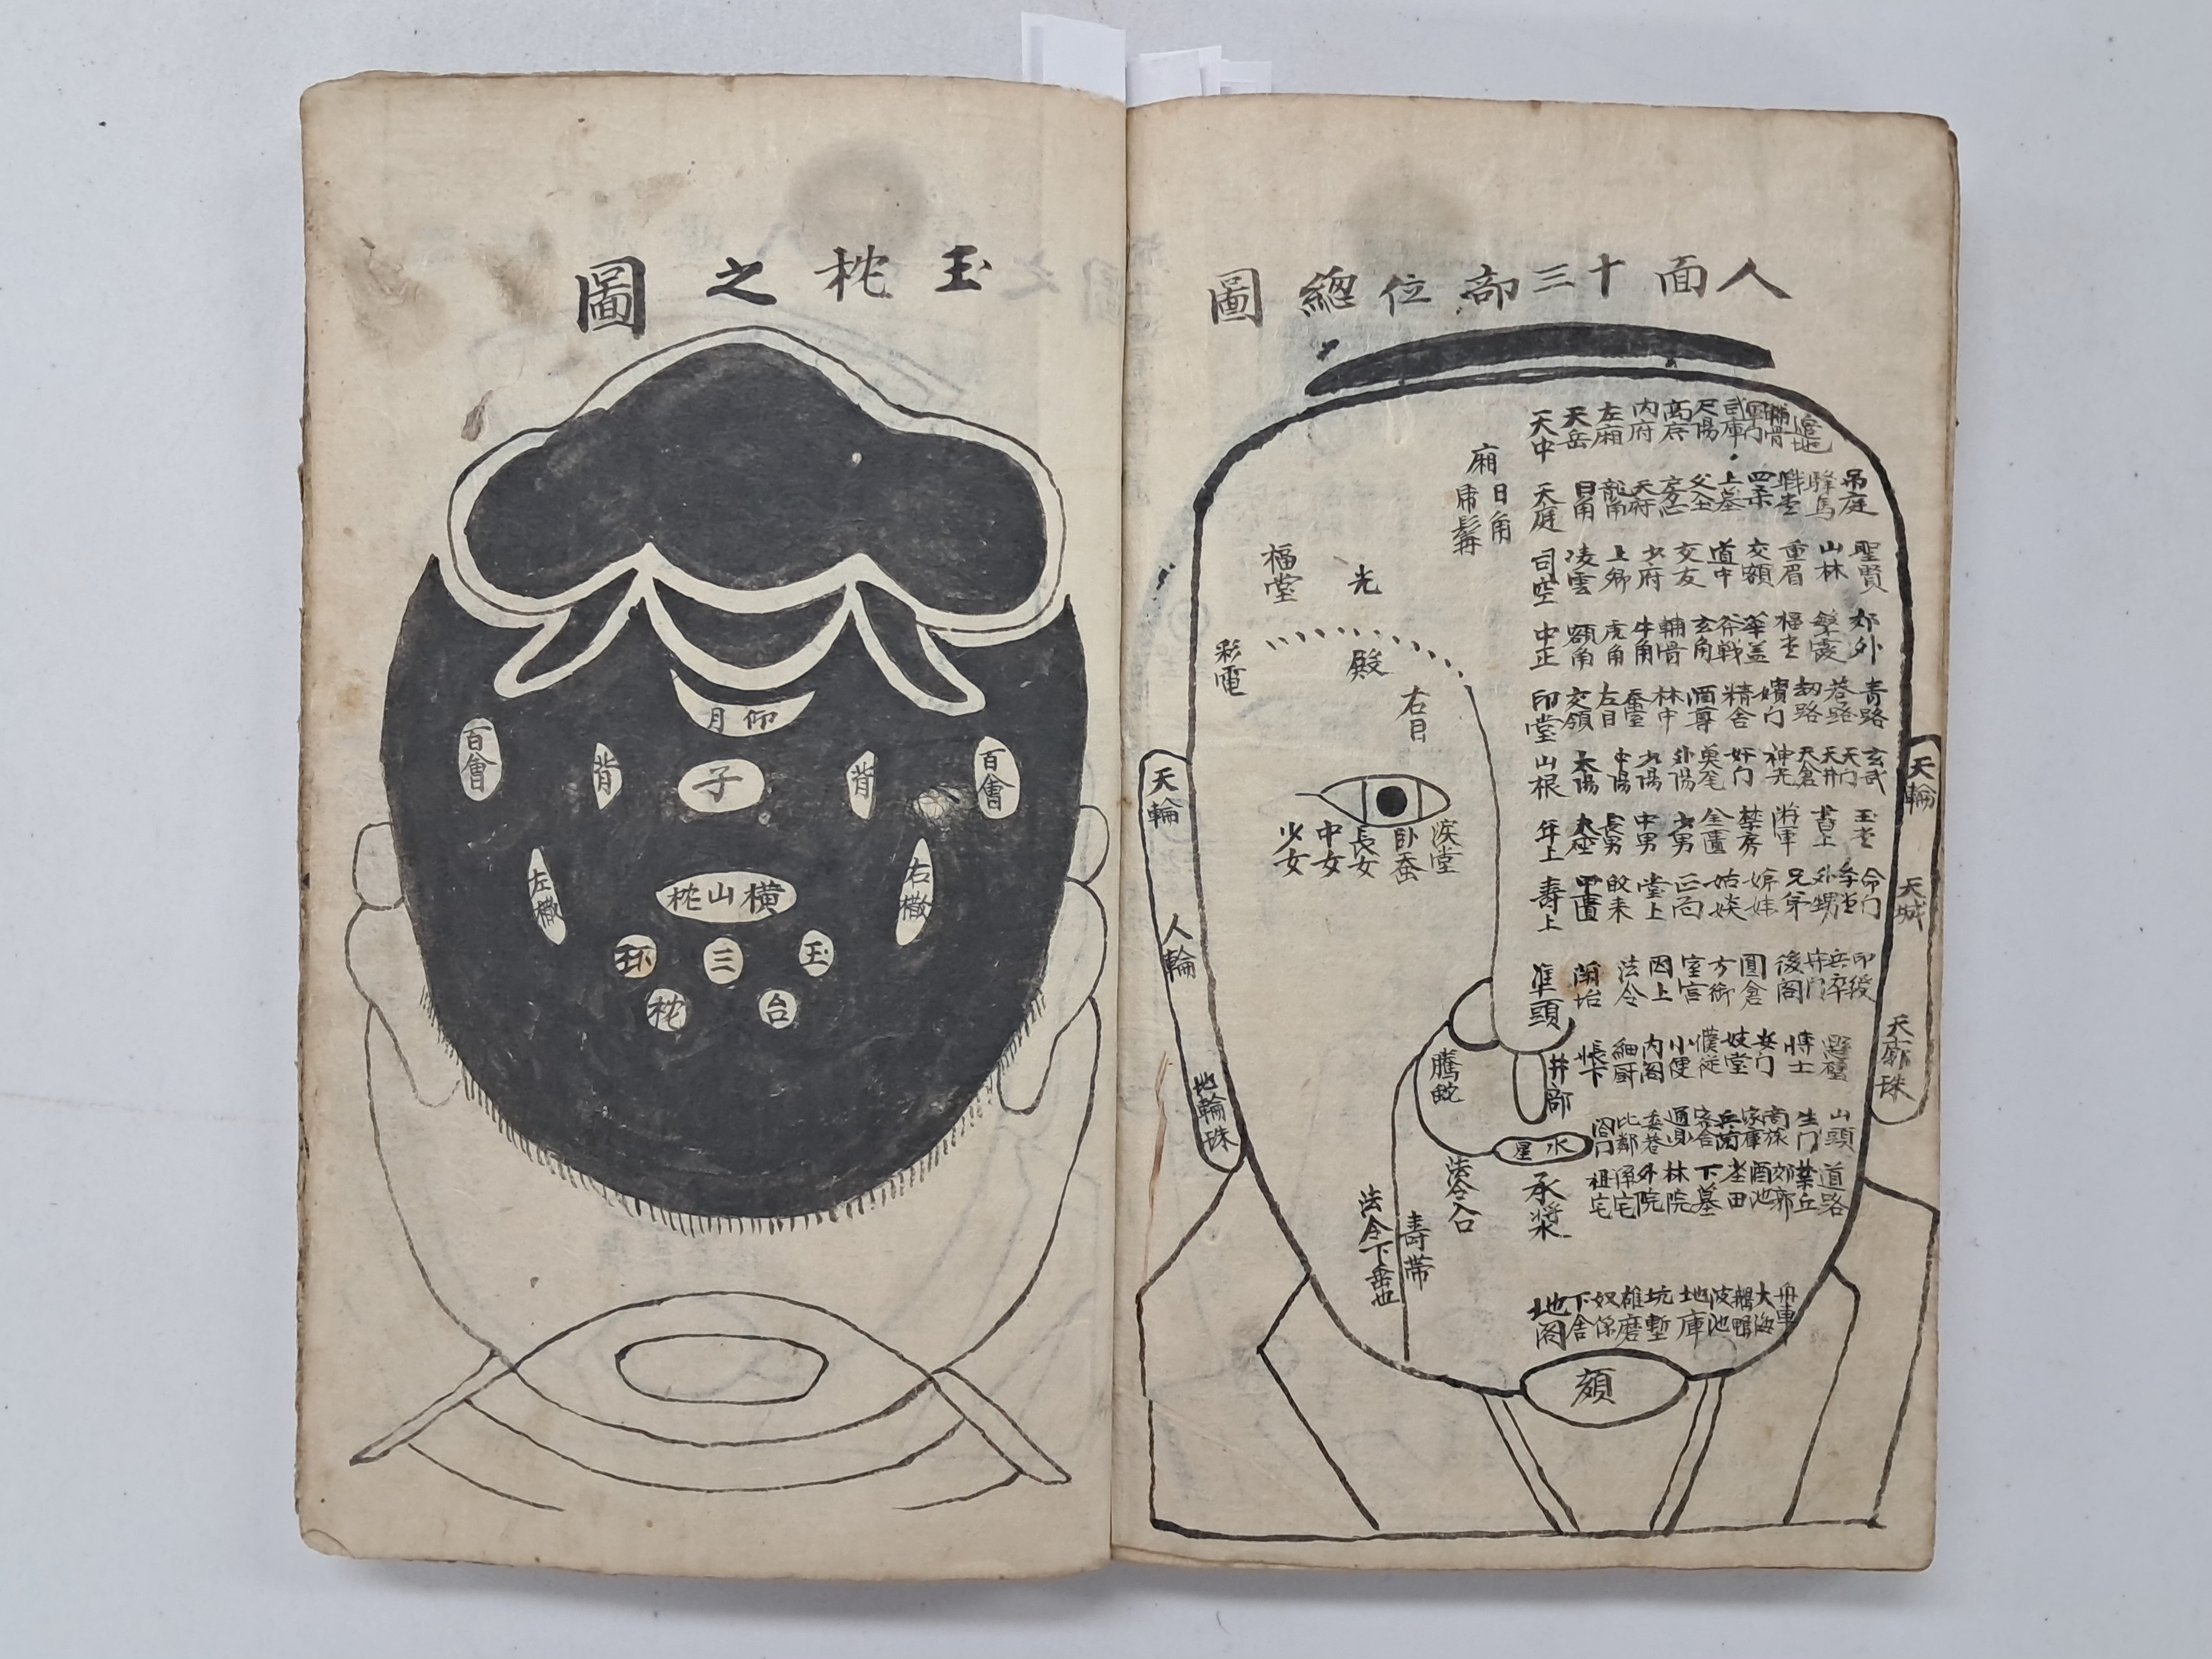 人面十三部位總圖
天中 天岳 左廂 内府 高府 尺陽 武庫 軍门 輔骨 邉地
天庭 日角 龍角 天府 房心 父墓 上墓 四杀 職堂 驛馬 吊庭
司空 凌雲 上卿 少府 交友 道中 交額 重眉 山林 聖賢
中正 額角 虎角 牛角 輔骨 玄角 斧戟 華盖 福堂 郊外
印堂 交領 左目 蚕室 林中 酒尊 精舍 嬪门 刼路 巷路 青路
山根 太陽 中陽 少陽 外陽 奐尾 奸门 神光 天倉 天井 天门 玄武
年上 夫座 長男 中男 少男 金匱 禁房 將軍 書上 玉堂
壽上 甲匱 堂上 正面 姑姨 兄弟 外甥 命门
準頭 法令 囙上 室宫 方衙 圓倉 後閣 守门 兵卒 印綬
井部 帳下 細厨 内閣 小使 僕從 妓堂 女门 博士 懸壁
水星 閤门 比鄰 委巷 通衢 客舍 兵蘭 家庫 商旅 生门 山頭
承漿 祖宅 孫宅 外院 林院 下墓 庄田 酒池 郊郭 荒丘 道路
地阁 下舍 奴僕 碓磨 坑塹 地庫 波池 鵝鴨 大海 舟車
頦
廂
日角
福堂
光
殿
彩電
右目
淚堂
卧蚕
長女
中女
少女
騰蛇
法令入口
壽帶
法令下垂也
天輪
人輪
地輪珠
天輪
天城
天廓珠
玉枕之圖
仰月
百會
背
子
背
百會
右撒
横山枕
左撒
玉
三
环
台
枕